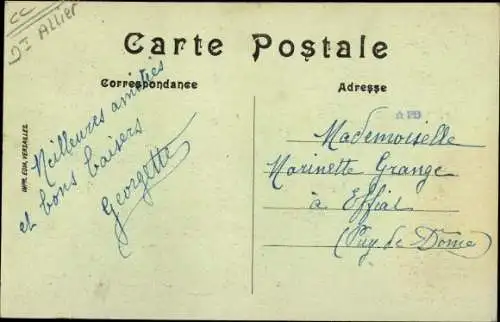 CC
Dt Allier
Carte Postale
Correspondance
Adresse
Meilleures amitiés
et bons baisers
Georgette
IMPR. EDIA, VERSAILLES.
Mademoiselle
Marinette Grange
à Effiat
(Puy de Dôme)